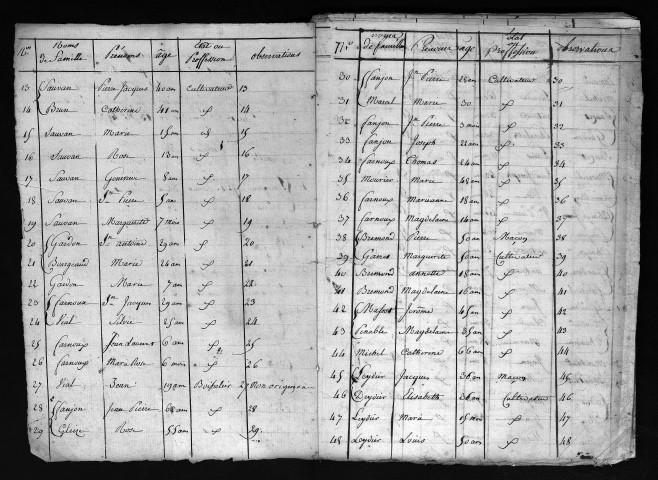 Nos Noms de Famille Prénoms âge Etat ou Proffission observations
13 Sauvan Pierre Jacques 40 ans Cultivateur 13
14 Brun Catherine 41 ans 14
15 Sauvan Marie 15 ans 15
16 Sauvan Rose 13 ans 16
17 Sauvan 8 ans 17
18 Sauvan Jn Pierre 5 ans 18
19 Sauvan Marguerite 7 mois 19
20 Gardon Jn antoine 29 ans 20
21 Bourgeaud Marie 26 ans 21
22 Gardon Marie 7 ans 22
23 Carnoux Jn Jacques 29 ans 23
24 Vial Silvie 25 ans 24
25 Carnoux Jean Laurent 6 ans 25
26 Carnoux Marie Rose 6 mois 26
27 Vial Jean 19 ans 27
28 Canjon Jean Pierre 68 ans 28
29 Rose 55 ans 29
No Noms de famille Prénoms age Etat Proffession observations
30 Canjon Jn Pierre 28 ans Cultivateur 30
31 Marie 30 31
32 Canjon Jn Pierre 3 mois 32
33 Canjon Joseph 22 ans 33
34 Carnoux Thomas 24 ans 34
35 Mourier Marie 48 ans 35
36 Carnoux Marianne 18 ans 36
37 Carnoux Magdelaine 14 ans 37
38 Bremond Pierre 50 ans Maçon 38
39 Marguerite 50 ans Cultivateur 39
40 Bremond annette 18 ans 40
41 Bremond Magdelaine 16 ans 41
42 Jerome 45 ans 42
43 Magdelaine 35 ans 43
44 Michel Catherine 66 ans 44
45 Leydier Jacques 36 ans Maçon 45
46 Elisabeth 36 ans Cultivateur 46
47 Leydier Marie 47
48 Leydier Louis 50 ans 48